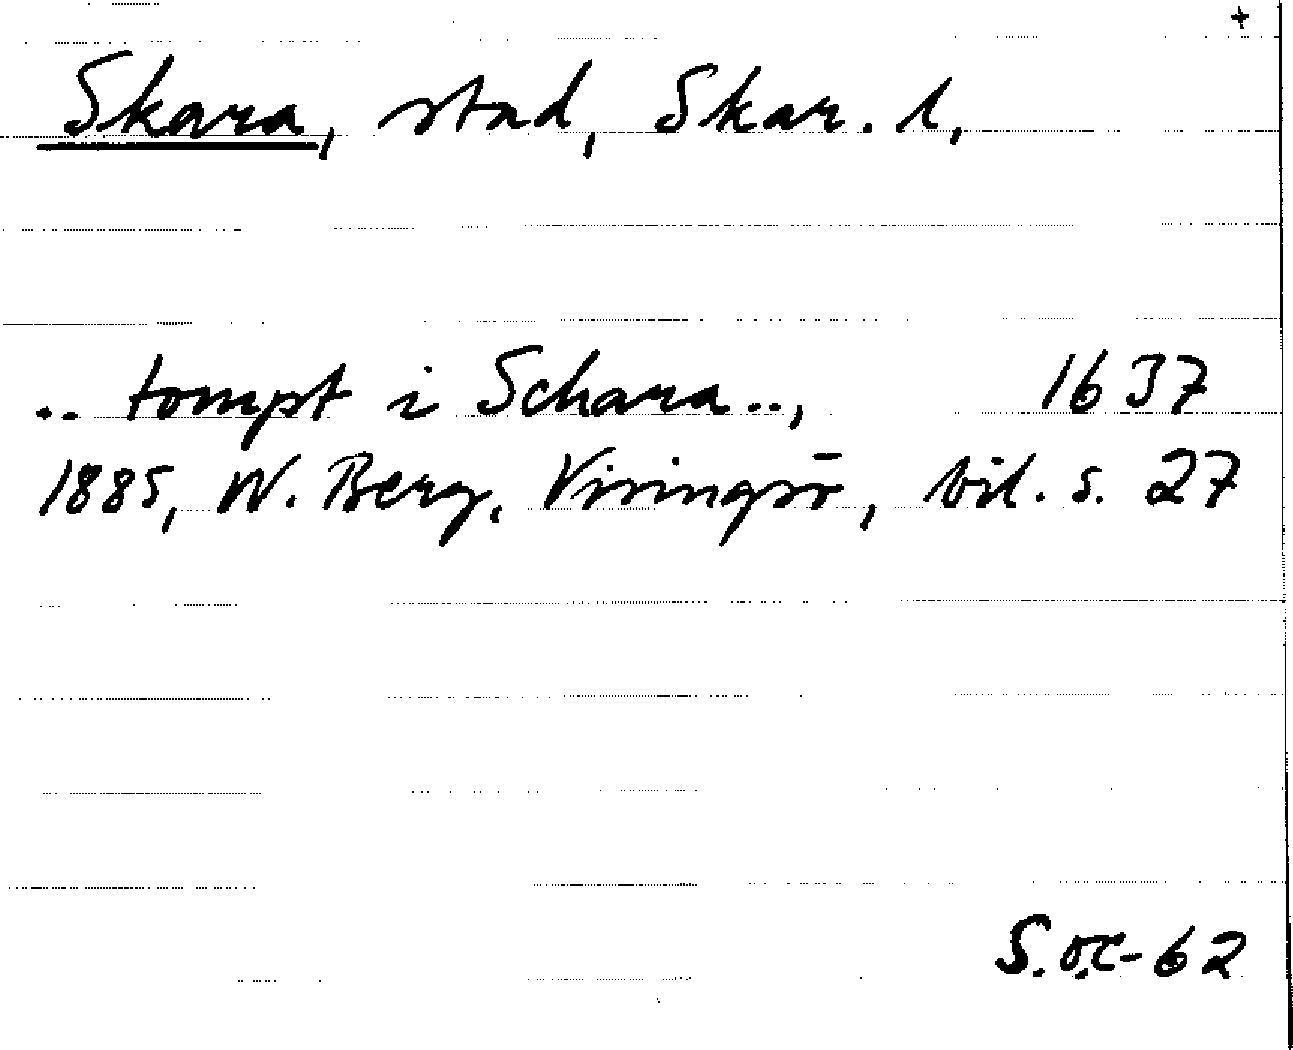 +
Skara, stad, Skar. l.
.. tompt i Schara.., 1637
1885, W. Berg, Visingsö, bil. s. 27
S.